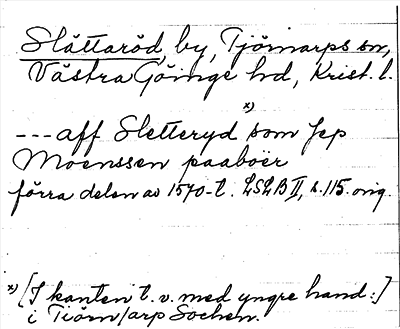 Slättaröd, by, Tjörnarps sn,
Västra Göinge hd, Krist. l.
--- aff Sletteryd x) som Jep
Moenssen paaboer
förra delen av 1570-t. LSLB II, s. 115. orig.
x) [I kanten t. v. med yngre hand:]
i Tiörn/arp Sochen.